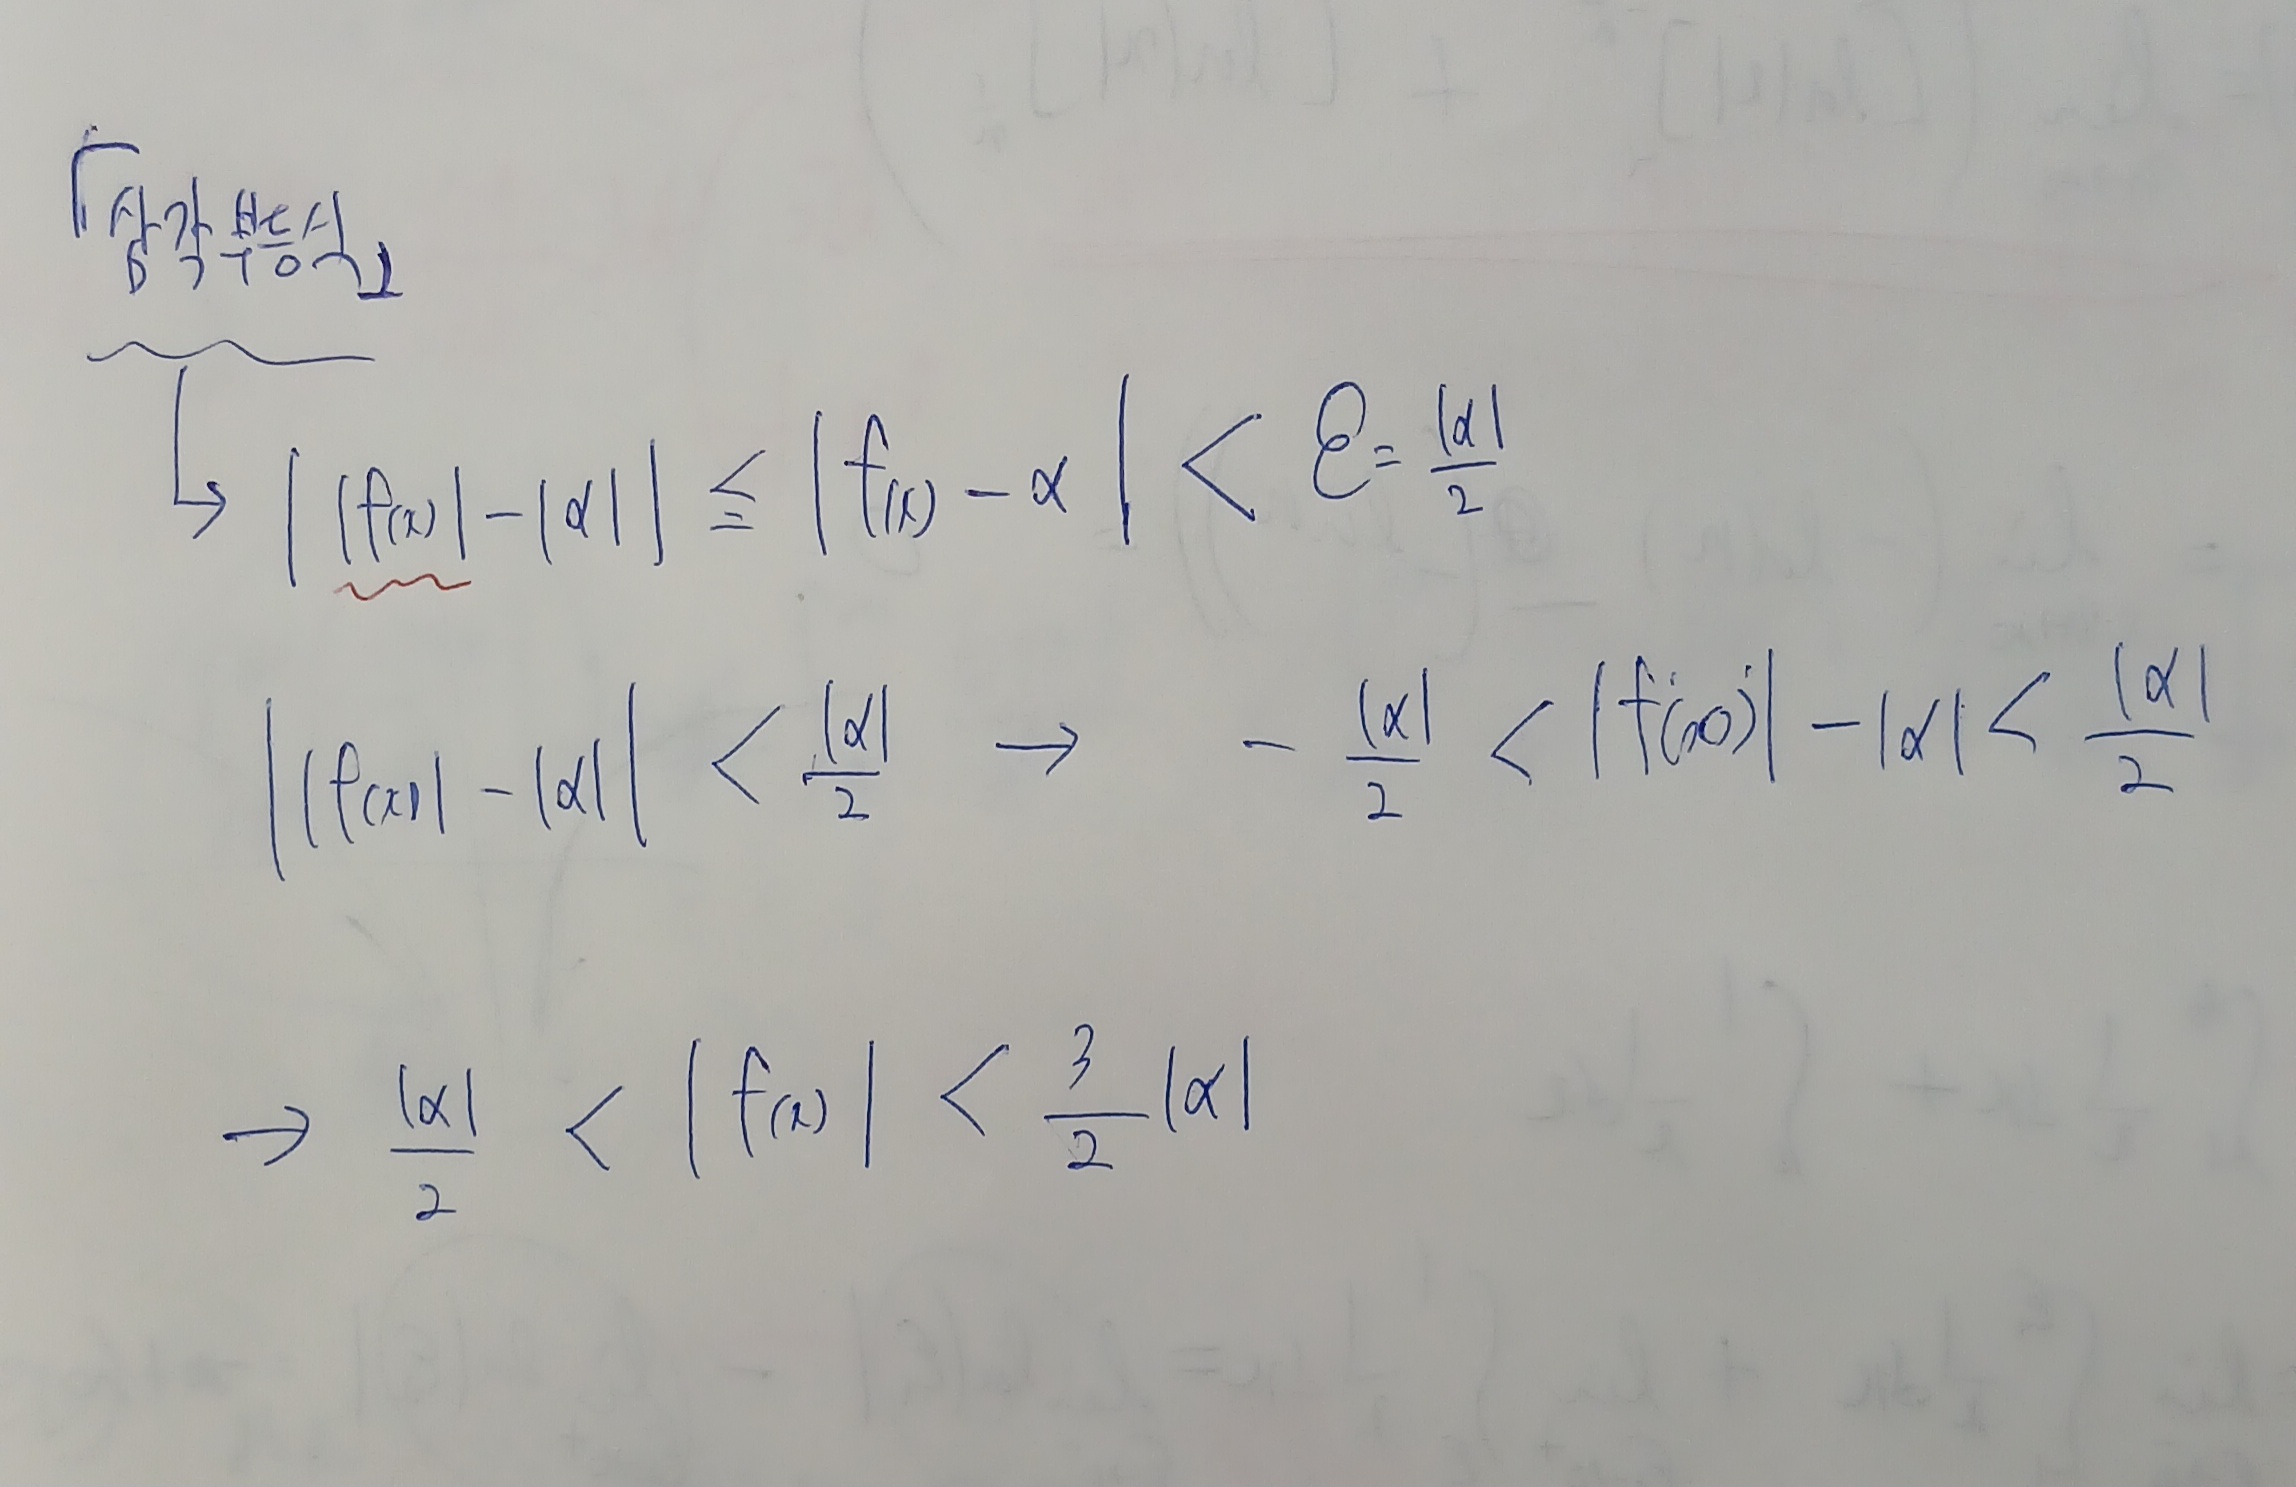 「삼각부등식」
↳ ||f(x)|-|α|| ≦ |f(x)-α| < ε = |α|/2
||f(x)|-|α|| < |α|/2 → -|α|/2 < |f(x)|-|α| < |α|/2
→ |α|/2 < |f(x)| < 3/2 |α|